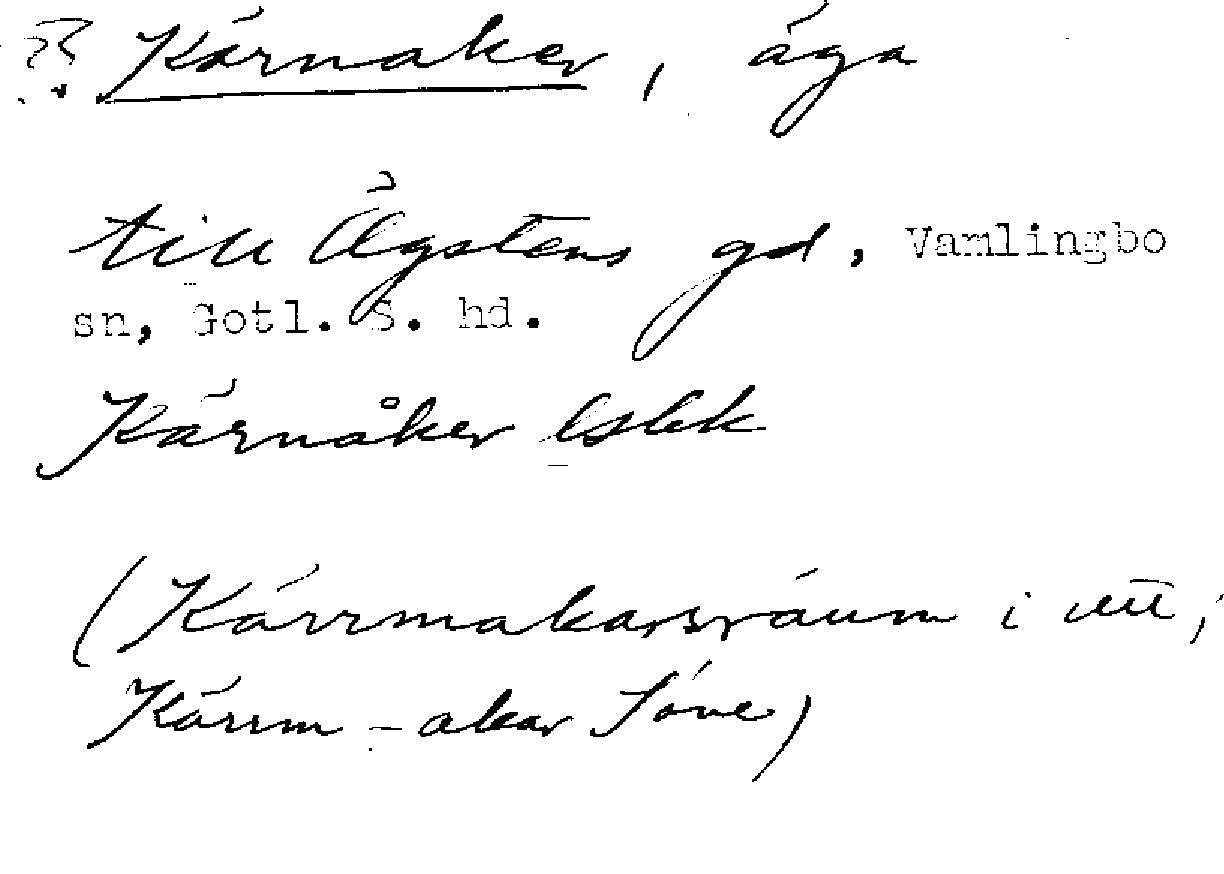 ?? Kärnaker, äga
till Ägstens gd, Vamlingbo
sn, Gotl. S. hd.
Kärnåker lslhk
(Kärrmakarsräum i utt;
Kärrm - akar Söve)